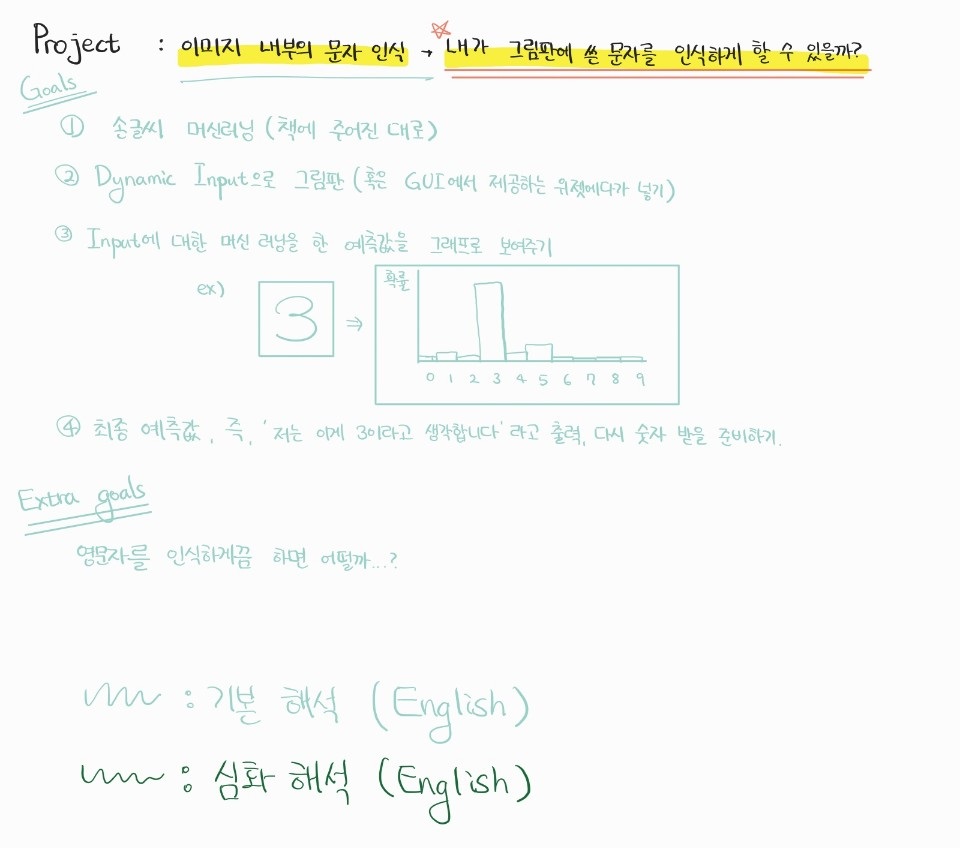 Project : 이미지 내부의 문자 인식 → 내가 그림판에 쓴 문자를 인식하게 할 수 있을까?
Goals
① 손글씨 머신러닝 (책에 주어진 대로)
② Dynamic Input으로 그림판 (혹은 GUI에서 제공하는 위젯에다가 넣기)
③ Input에 대한 머신 러닝을 한 예측값을 그래프로 보여주기
ex) 3 ⇒
확률
0 1 2 3 4 5 6 7 8 9
④ 최종 예측값, 즉, '저는 이게 3이라고 생각합니다' 라고 출력, 다시 숫자 받을 준비하기.
Extra goals
영문자를 인식하게끔 하면 어떨까...?
: 기본 해석 (English)
: 심화 해석 (English)